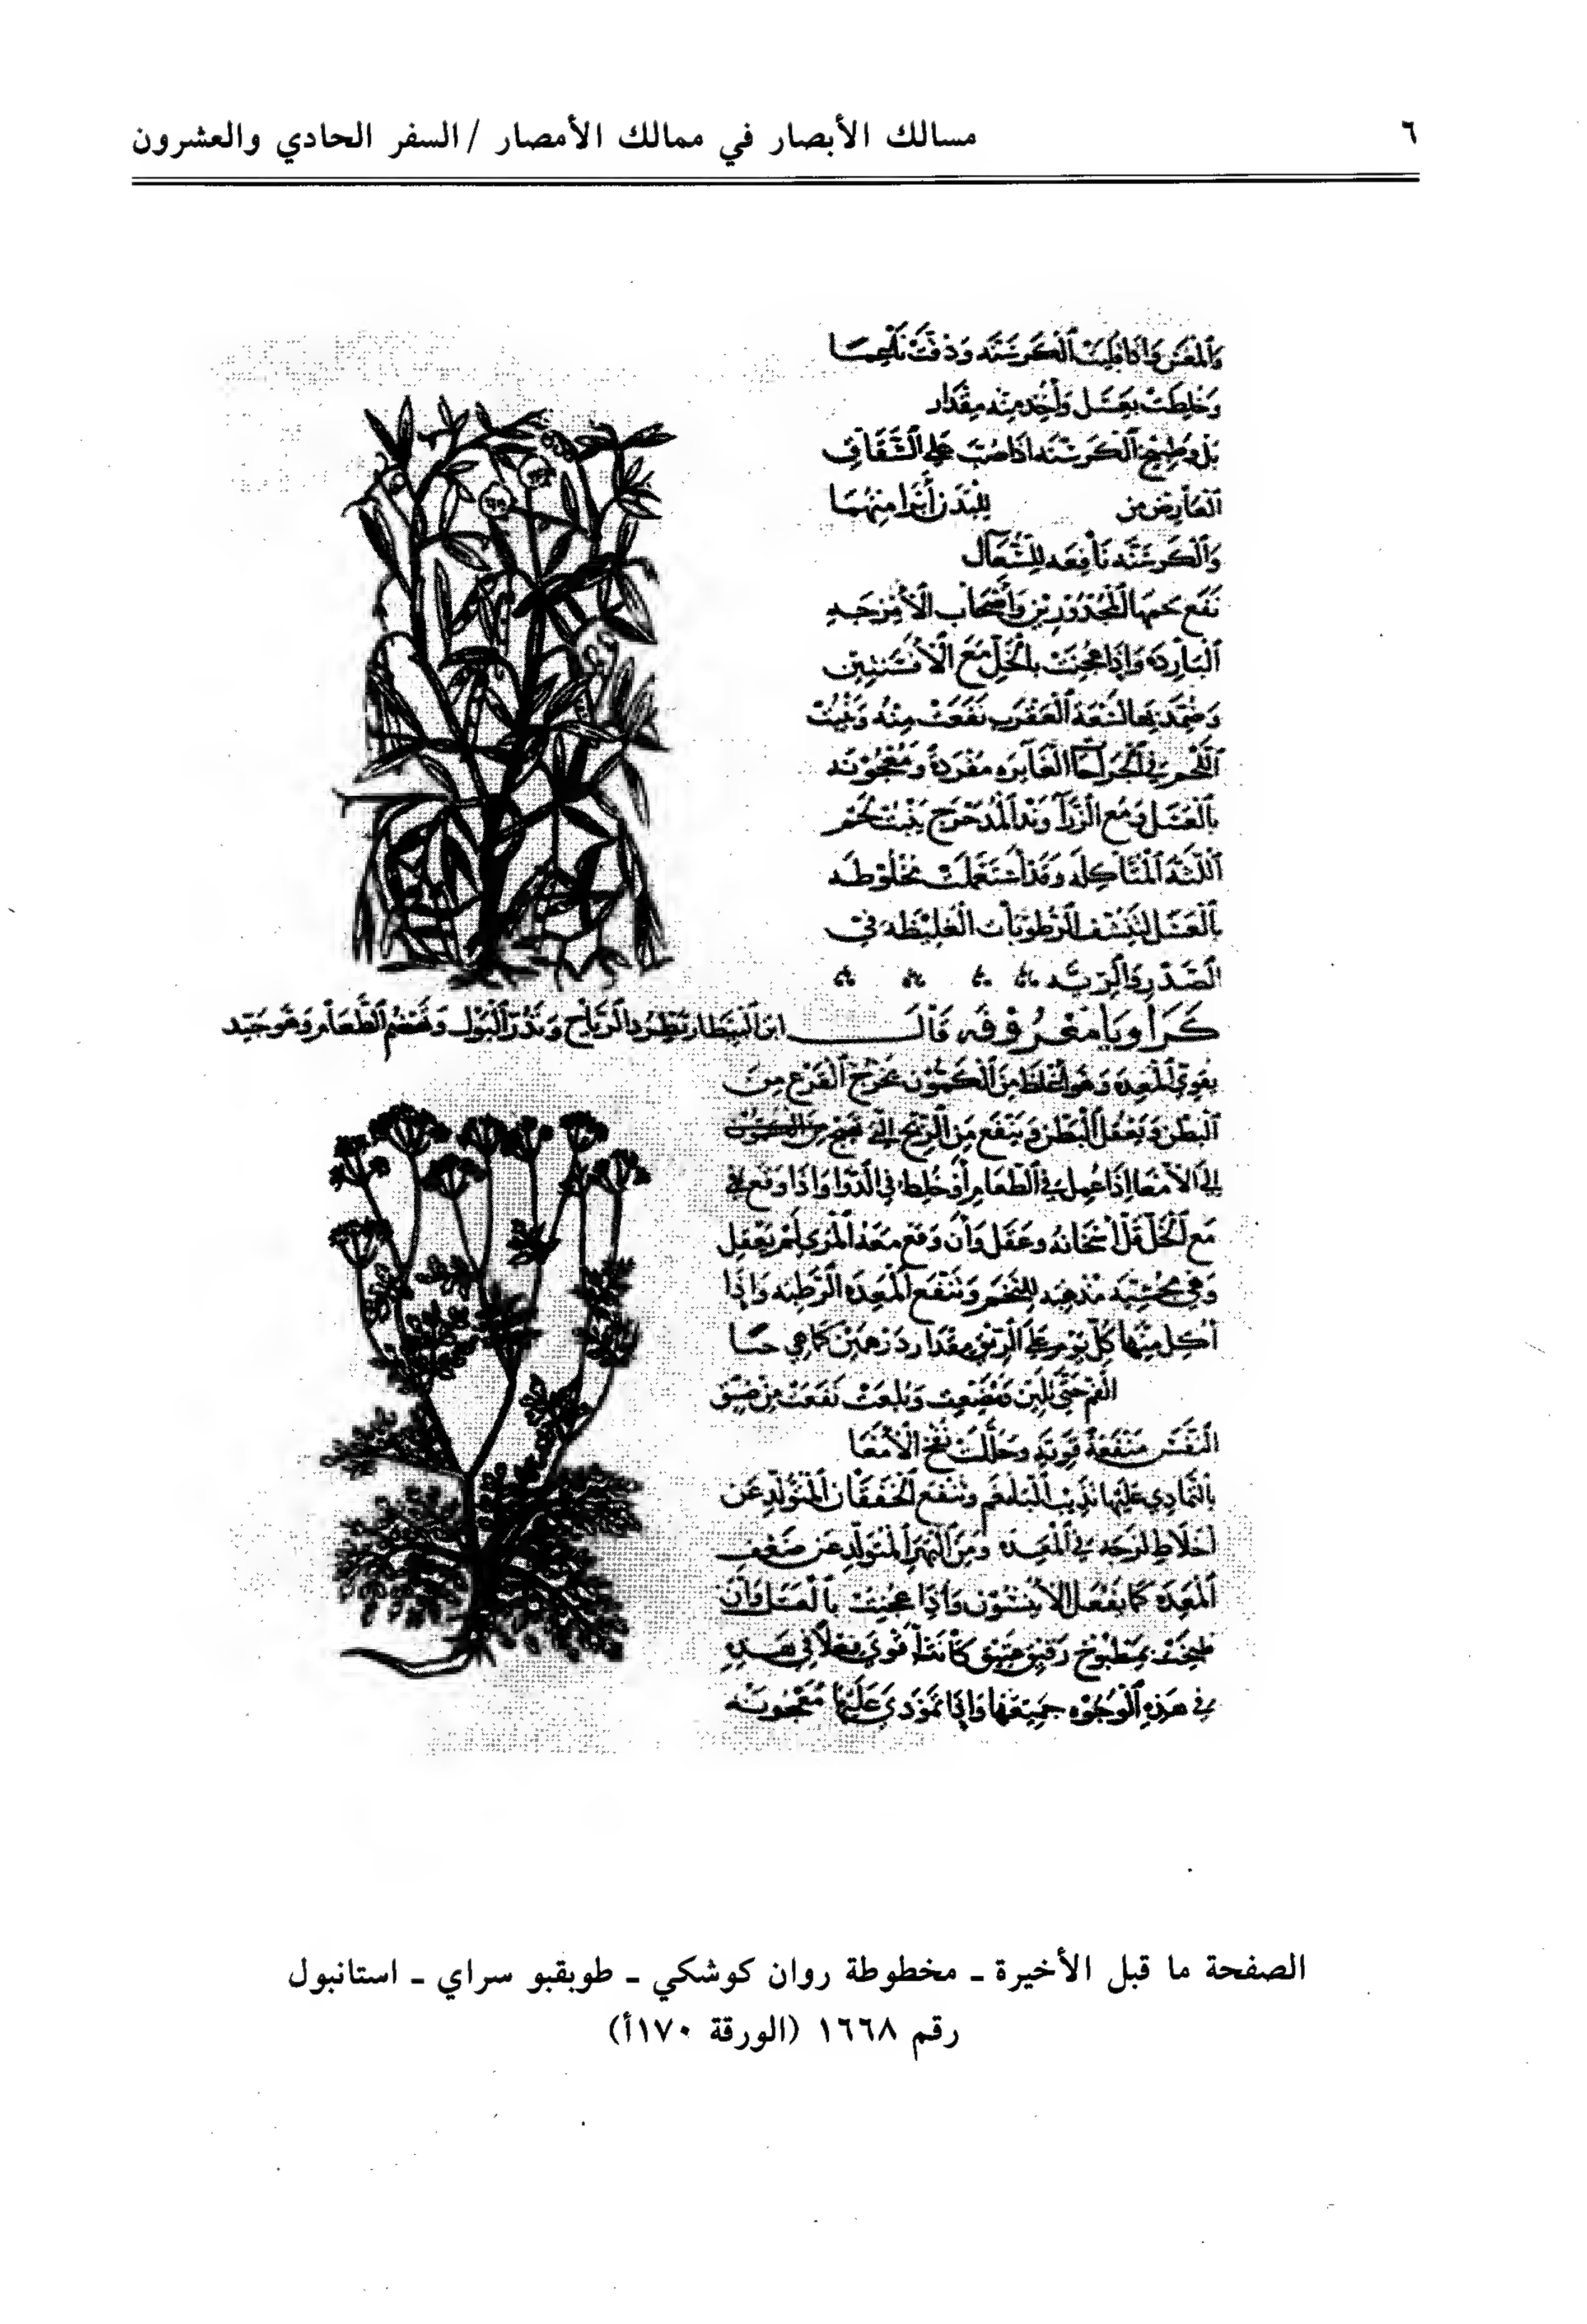 ٦
مسالك الأبصار في ممالك الأمصار / السفر الحادي والعشرون
والمغص واذا قليت الكرسنه ودقت ناعما
وخلطت بعسل وأخذ منه مقدار
وطبيخ الكرسنه اذا صب على الشقاق
العارض من للبدن أبرا منهما
والكرسنه نافعه للسعال
المجدورين وأصحاب الأمزجه
البارده وإذا عجنت بالخل مع الأفسنتين
وضمد بها لسعة العقرب نفعت منه وتنبت
اللحم في الجراحا الغايره مفردة ومعجونه
بالعسل ومع الزراوند المدحرج ينبت لحم
اللثه المتاكله وقد استعملت مخلوطه
بالعسل لتنشف الرطوبات الغليظه في
الصدر والريه
كراويا معروفه قال ابن البيطار تطرد الرياح وتدر البول وتهضم الطعام وهو جيد
يقوي المعده وهو أغلظ من الكمون يخرج القرع من
البطن ويعقل البطن وينفع من الريح
إلى الأمعا إذا عمل في الطعام أو خلط في الدوا واذا وقع
مع الخل قل اسخانه وعقل وأن وقع معه المري لم يعقل
وهي مجشيه مذهبه للتخم وتنفع المعده الرطبه وإذا
أكل منها كل يوم على الريق مقدار درهمين كما هي
الفم حتى تلين ومضغت وبلعت نفعت من ضيق
النفس منفعة قويه وحللت نفخ الأمعا
بالتمادي عليها تذيب البلغم وتنفع الخفقان المتولد عن
أخلاط لزجه في المعده ومن البهر المتولد عن ضعف
المعده كما يفعل الأنيسون واذا عجنت بالعسل وأن
طبخت بمطبوخ رقيق عتيق كانت أقوى فعلا
في هذه الوجوه جميعها وإذا تمودي عليها معجونه
الصفحة ما قبل الأخيرة ـ مخطوطة روان كوشكي ـ طوبقبو سراي ـ استانبول
رقم ١٦٦٨ (الورقة ١٧٠أ)